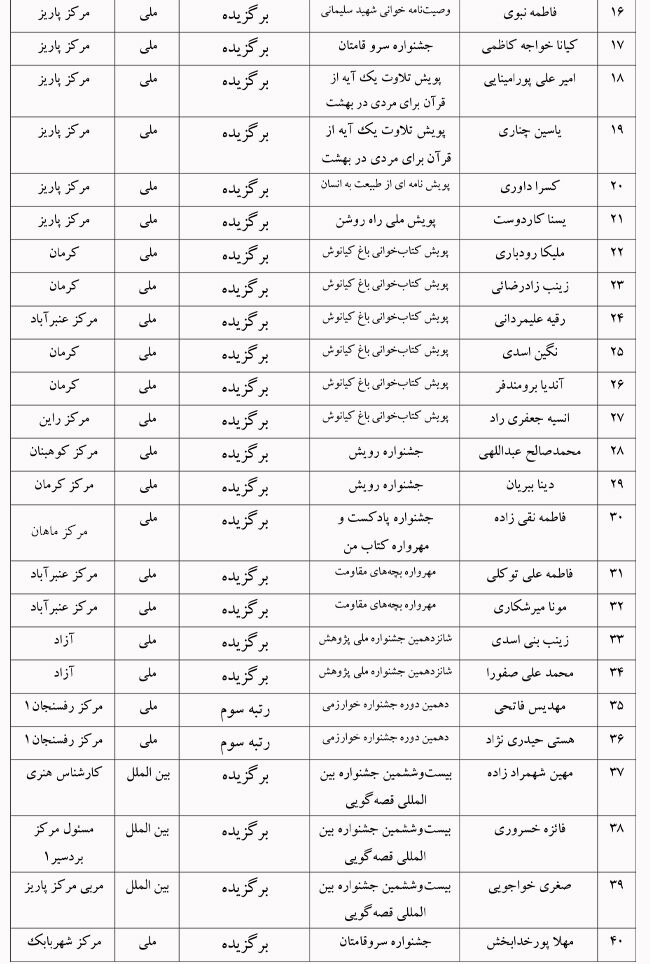 ۱۶ فاطمه نبوی وصیت‌نامه خوانی شهید سلیمانی برگزیده ملی مرکز پاریز
۱۷ کیانا خواجه کاظمی جشنواره سرو قامتان برگزیده ملی مرکز پاریز
۱۸ امیر علی پورامینایی پویش تلاوت یک آیه از برگزیده ملی مرکز پاریز
قرآن برای مردی در بهشت
۱۹ یاسین چناری پویش تلاوت یک آیه از برگزیده ملی مرکز پاریز
قرآن برای مردی در بهشت
۲۰ کسرا داوری پویش نامه ای از طبیعت به انسان برگزیده ملی مرکز پاریز
۲۱ یسنا کاردوست پویش ملی راه روشن برگزیده ملی مرکز پاریز
۲۲ ملیکا رودباری پویش کتاب‌خوانی باغ کیانوش برگزیده ملی کرمان
۲۳ زینب زادرضائی پویش کتاب‌خوانی باغ کیانوش برگزیده ملی کرمان
۲۴ رقیه علیمردانی پویش کتاب‌خوانی باغ کیانوش برگزیده ملی مرکز عنبرآباد
۲۵ نگین اسدی پویش کتاب‌خوانی باغ کیانوش برگزیده ملی کرمان
۲۶ آندیا برومندفر پویش کتاب‌خوانی باغ کیانوش برگزیده ملی کرمان
۲۷ انسیه جعفری راد پویش کتاب‌خوانی باغ کیانوش برگزیده ملی مرکز راین
۲۸ محمدصالح عبداللهی جشنواره رویش برگزیده ملی مرکز کوهبنان
۲۹ دینا ببریان جشنواره رویش برگزیده ملی مرکز کرمان
۳۰ فاطمه نقی زاده جشنواره پادکست و برگزیده ملی مرکز ماهان
مهرواره کتاب من
۳۱ فاطمه علی توکلی مهرواره بچه‌های مقاومت برگزیده ملی مرکز عنبرآباد
۳۲ مونا میرشکاری مهرواره بچه‌های مقاومت برگزیده ملی مرکز عنبرآباد
۳۳ زینب بنی اسدی شانزدهمین جشنواره ملی پژوهش برگزیده ملی آزاد
۳۴ محمد علی صفورا شانزدهمین جشنواره ملی پژوهش برگزیده ملی آزاد
۳۵ مهدیس فاتحی دهمین دوره جشنواره خوارزمی رتبه سوم ملی مرکز رفسنجان۱
۳۶ هستی حیدری نژاد دهمین دوره جشنواره خوارزمی رتبه سوم ملی مرکز رفسنجان۱
۳۷ مهین شهمراد زاده بیست‌وششمین جشنواره بین برگزیده بین الملل کارشناس هنری
المللی قصه‌گویی
۳۸ فائزه خسروری بیست‌وششمین جشنواره بین برگزیده بین الملل مسئول مرکز
المللی قصه‌گویی بردسیر۱
۳۹ صغری خواجویی بیست‌وششمین جشنواره بین برگزیده بین الملل مربی مرکز پاریز
المللی قصه‌گویی
۴۰ مهلا پورخدابخش جشنواره سروقامتان برگزیده ملی مرکز شهربابک